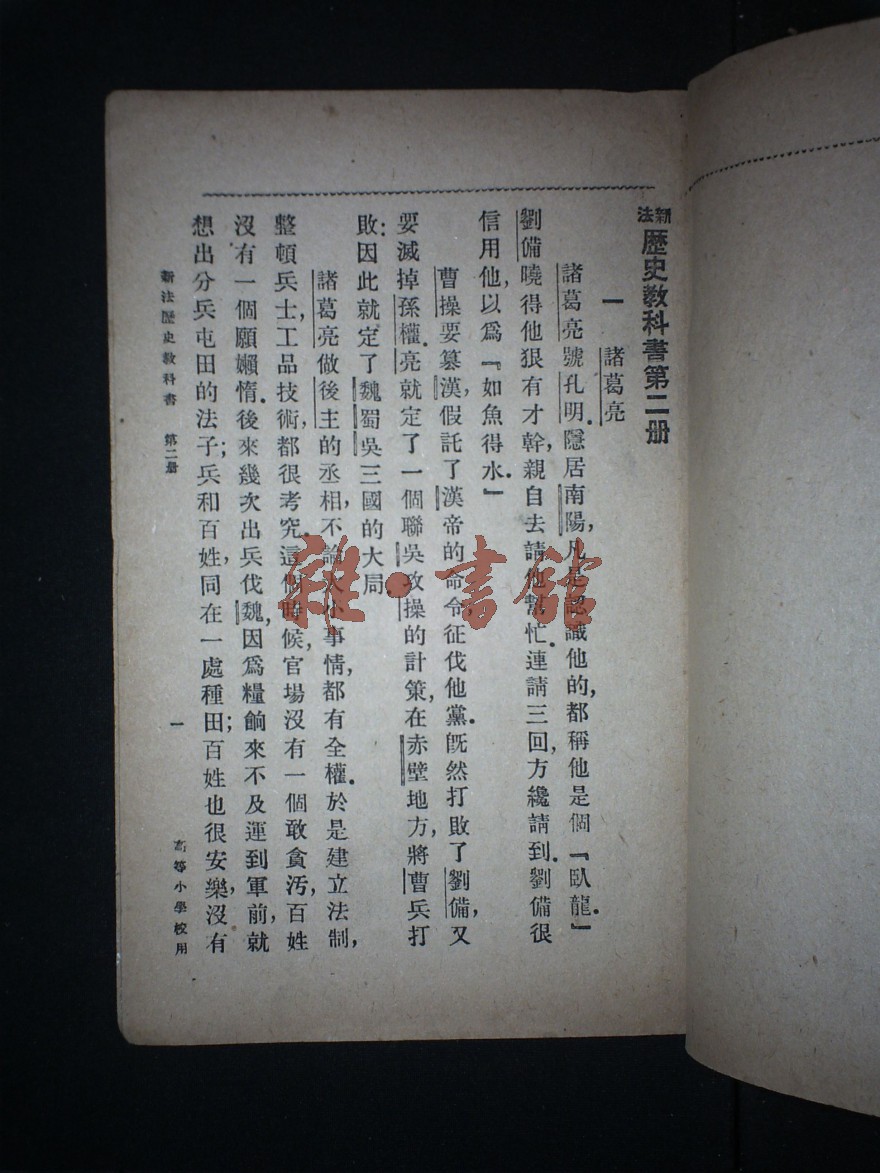 新法歷史教科書第二册
一 諸葛亮
諸葛亮號孔明．隱居南陽，凡是認識他的，都稱他是個『臥龍．』
劉備曉得他狠有才幹，親自去請他幫忙．連請三回，方纔請到．劉備很
信用他，以爲『如魚得水．』
曹操要篡漢，假託了漢帝的命令，征伐他黨．旣然打敗了劉備，又
要滅掉孫權．亮就定了一個聯吳攻操的計策，在赤壁地方，將曹兵打
敗：因此就定了魏蜀吳三國的大局．
諸葛亮做後主的丞相，不論大小事情，都有全權．於是建立法制，
整頓兵士，工品技術，都很考究．這個時候，官場沒有一個敢貪汚，百姓
沒有一個願嬾惰．後來幾次出兵伐魏，因爲糧餉來不及運到軍前，就
想出分兵屯田的法子；兵和百姓，同在一處種田；百姓也很安樂，沒有
新法歷史教科書 第二册
一
高等小學校用
雜·書館